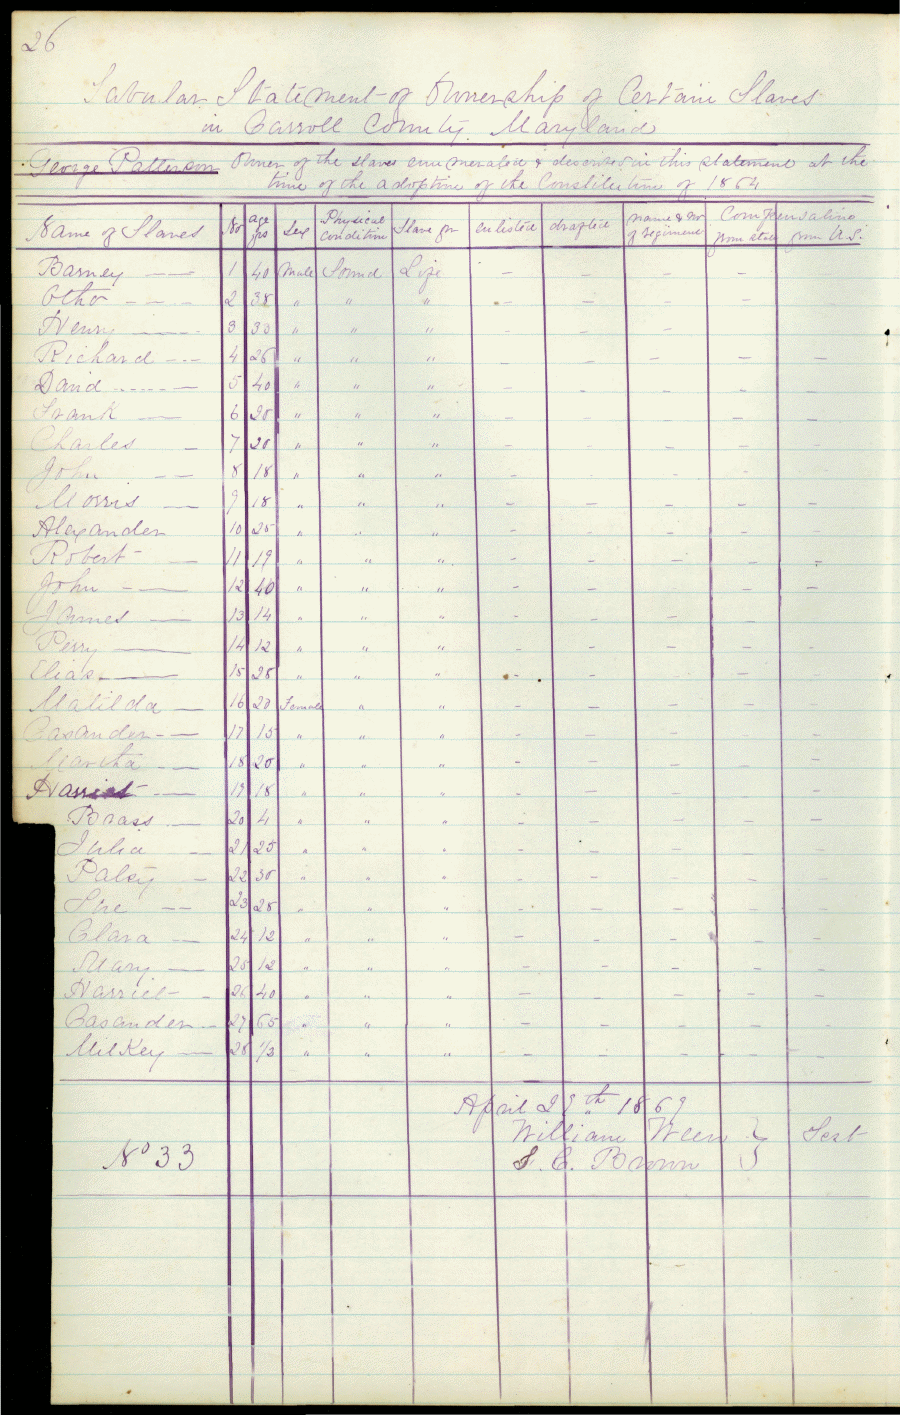 26
Tabular Statement of Ownership of Certain Slaves
in Carroll County Maryland
George Patterson Owner of the slaves enumerated & described in this statement at the
time of the adoption of the Constitution of 1864
Name of Slaves No age yrs Sex Physical condition Slave for enlisted drafted name & No of regiment Compensation from state from U.S.
Barney — 1 40 Male Sound Life — — — — —
Otho — 2 38 " " " — — — — —
Henry — 3 33 " " " — — — — —
Richard — 4 26 " " " — — — — —
David — 5 40 " " " — — — — —
Frank — 6 20 " " " — — — — —
Charles — 7 20 " " " — — — — —
John — 8 18 " " " — — — — —
Morris — 9 18 " " " — — — — —
Alexander 10 25 " " " — — — — —
Robert — 11 19 " " " — — — — —
John — 12 40 " " " — — — — —
James — 13 14 " " " — — — — —
Perry — 14 12 " " " — — — — —
Elias — 15 28 " " " — — — — —
Matilda — 16 20 Female " " — — — — —
Casander — 17 15 " " " — — — — —
Martha — 18 20 " " " — — — — —
Harriet — 19 18 " " " — — — — —
Brass — 20 4 " " " — — — — —
Julia — 21 25 " " " — — — — —
Patsy — 22 30 " " " — — — — —
Sue — 23 28 " " " — — — — —
Clara — 24 12 " " " — — — — —
Mary — 25 12 " " " — — — — —
Harriet — 26 40 " " " — — — — —
Casander — 27 65 " " " — — — — —
Milkey — 28 1/3 " " " — — — — —
April 29th 1869
William
No 33 S. C. Brown } Test